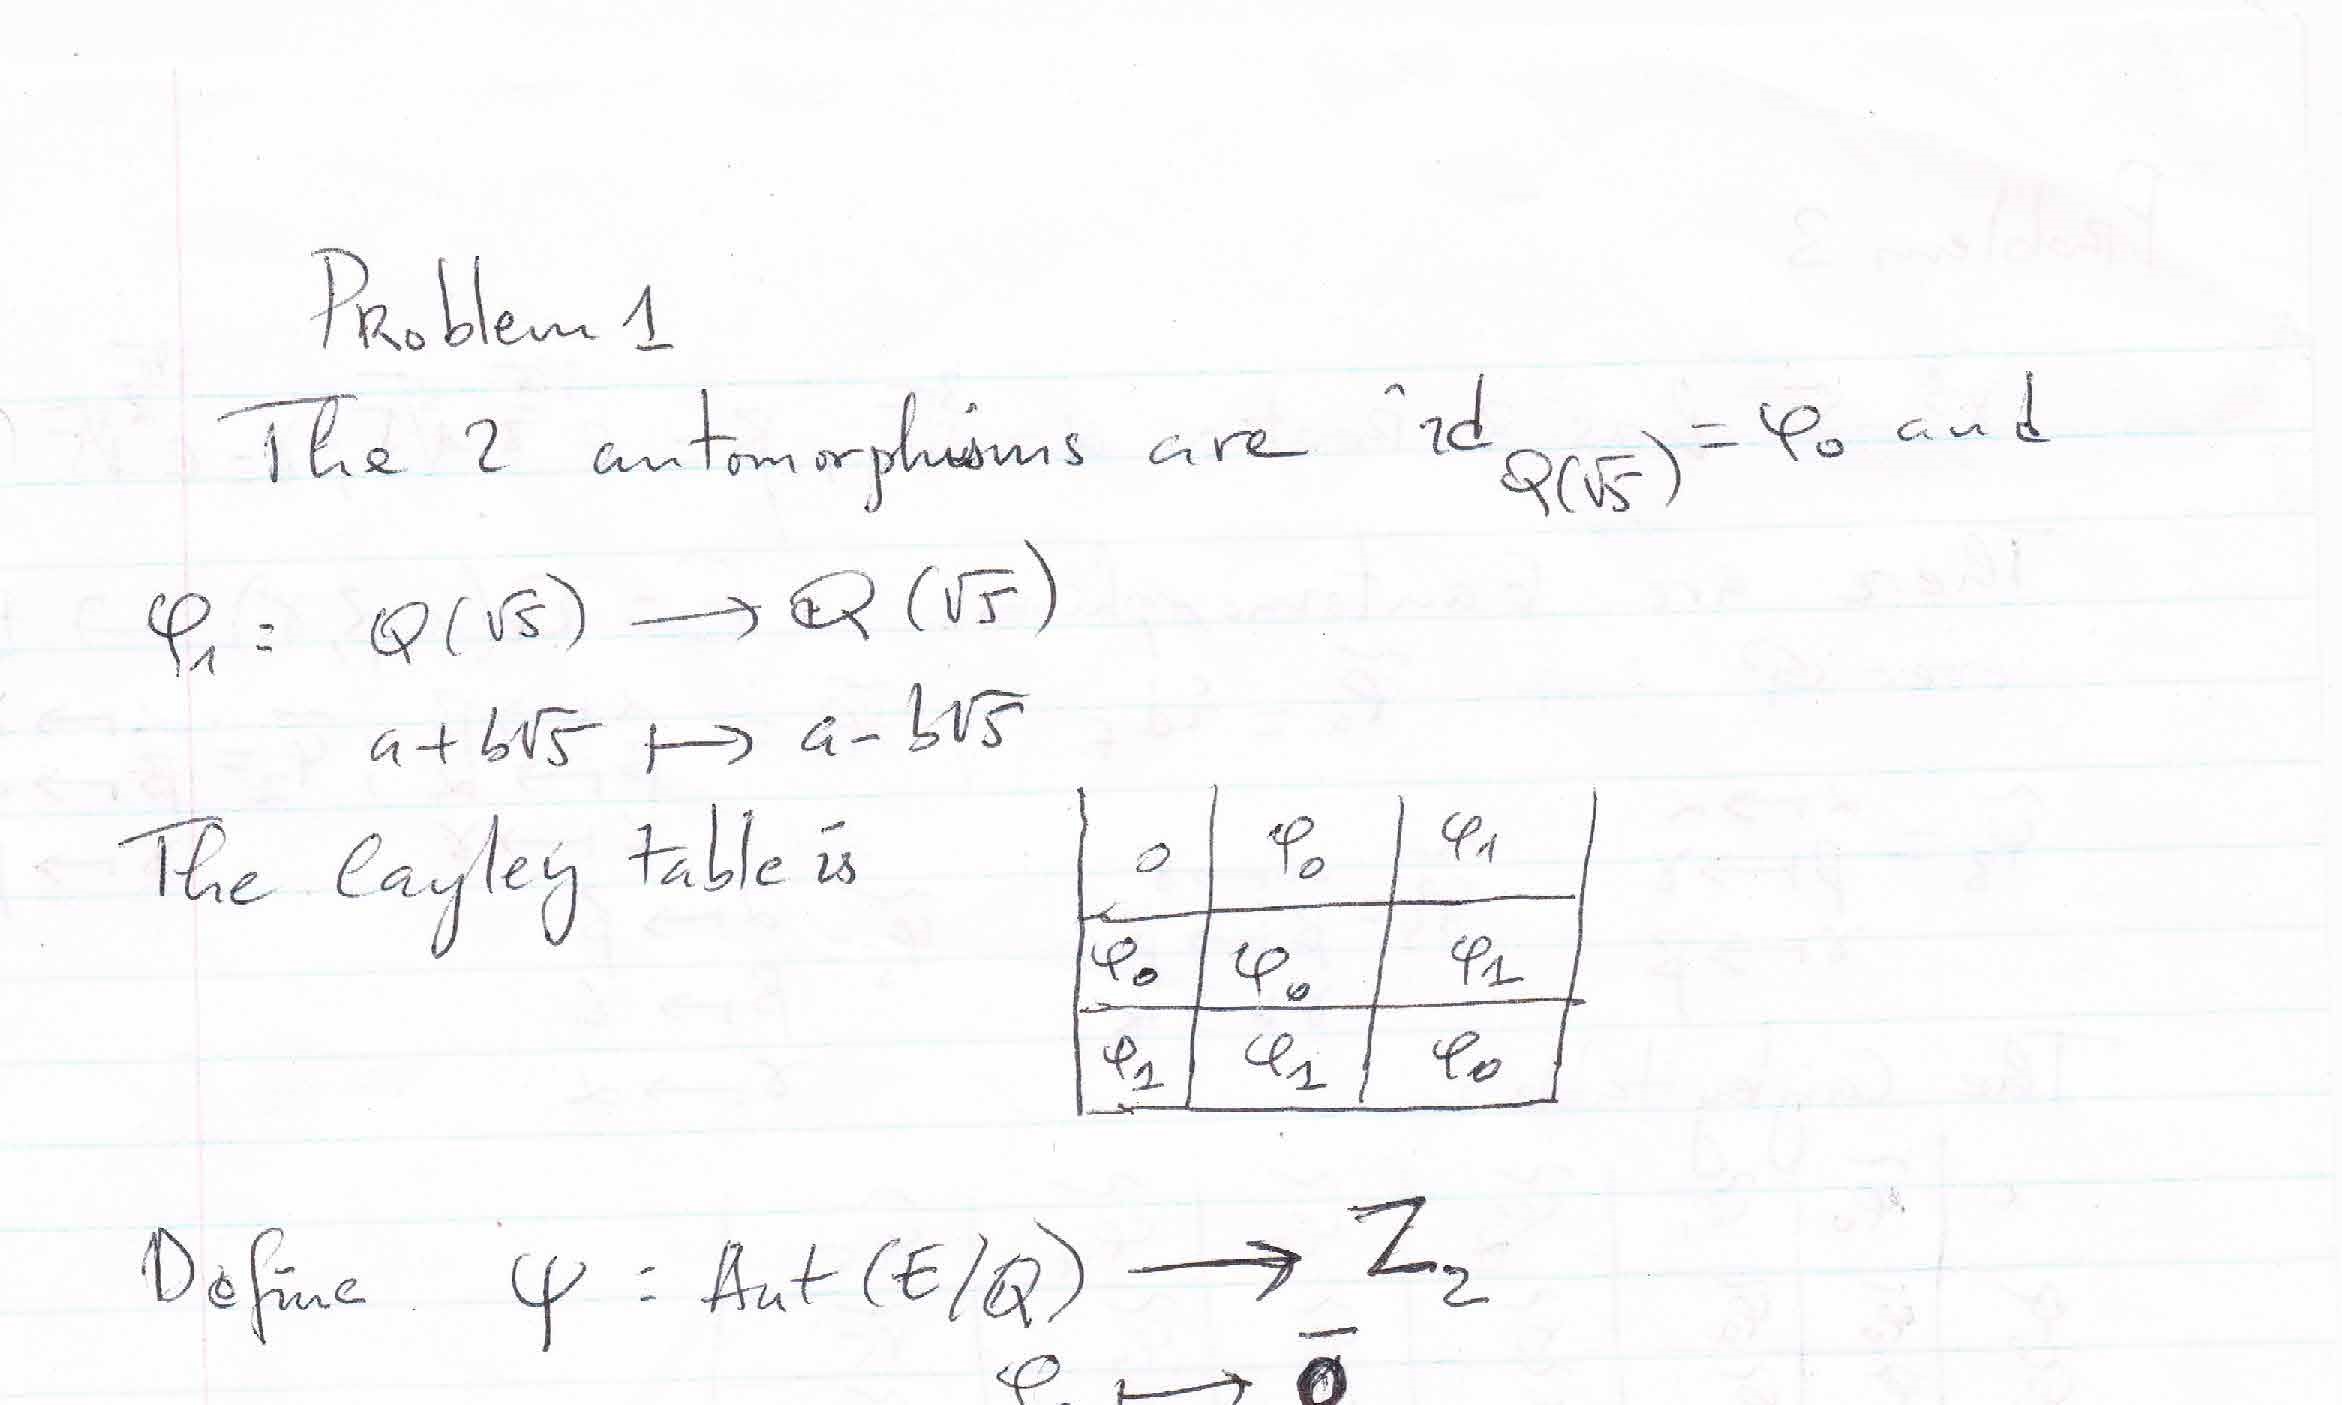 Problem 1
The 2 automorphisms are id_Q(√5) = φ₀ and
φ₁ : Q(√5) → Q(√5)
a+b√5 ↦ a-b√5
The Cayley table is
∘ φ₀ φ₁
φ₀ φ₀ φ₁
φ₁ φ₁ φ₀
Define ψ : Aut(E/Q) → Z₂
↦ 0̅